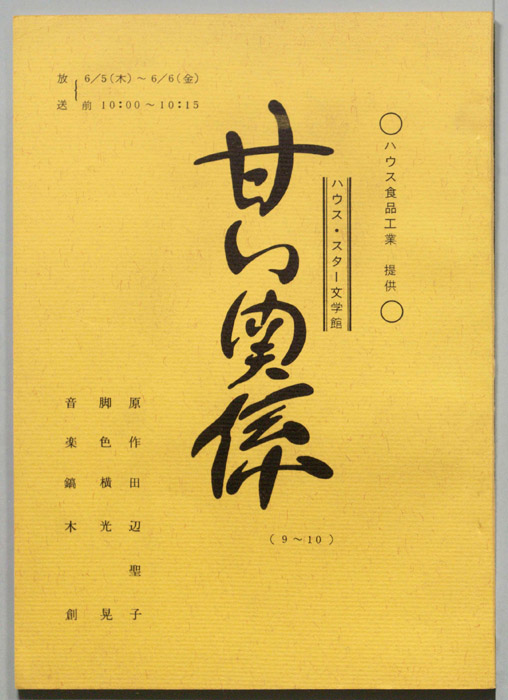 ○ハウス食品工業 提供○
ハウス・スター文学館
甘い関係
(9〜10)
放送 6/5(木)〜6/6(金)
前 10:00〜10:15
原作 田辺聖子
脚色 横光晃
音楽 鏑木創